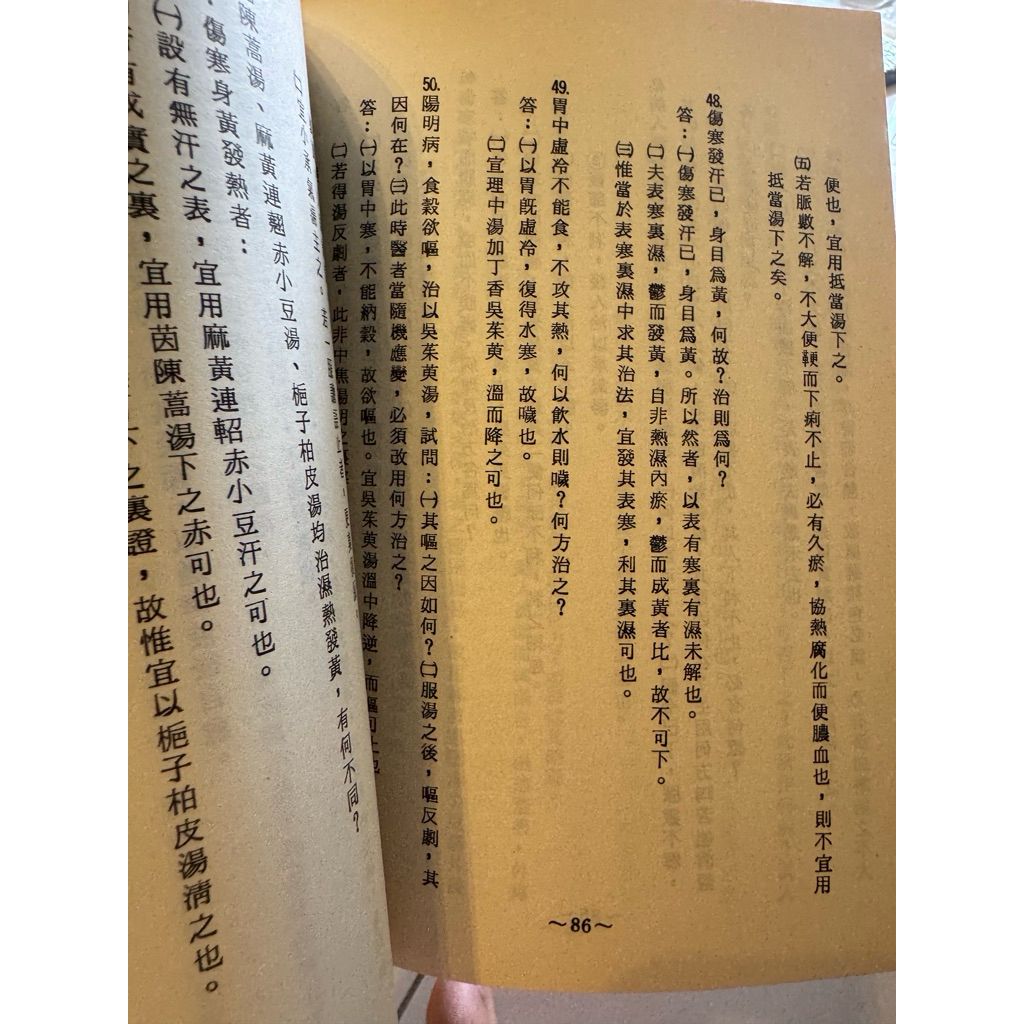 便也，宜用抵當湯下之。
㈤若脈數不解，不大便鞕而下痢不止，必有久瘀，協熱腐化而便膿血也，則不宜用
抵當湯下之矣。
48.傷寒發汗已，身目爲黃，何故？治則爲何？
答：㈠傷寒發汗已，身目爲黃。所以然者，以表有寒裏有濕未解也。
㈡夫表寒裏濕，鬱而發黃，自非熱濕內瘀，鬱而成黃者比，故不可下。
㈢惟當於表寒裏濕中求其治法，宜發其表寒，利其裏濕可也。
49.胃中虛冷不能食，不攻其熱，何以飲水則噦？何方治之？
答：㈠以胃旣虛冷，復得水寒，故噦也。
㈡宜理中湯加丁香吳茱萸，溫而降之可也。
50.陽明病，食穀欲嘔，治以吳茱萸湯，試問：㈠其嘔之因如何？㈡服湯之後，嘔反劇，其
因何在？㈢此時醫者當隨機應變，必須改用何方治之？
答：㈠以胃中寒，不能納穀，故欲嘔也。宜吳茱萸湯溫中降逆，而嘔可止也
㈡若得湯反劇者，此非中焦陽明之
～86～
陳蒿湯、麻黃連翹赤小豆湯、梔子柏皮湯均治濕熱發黃，有何不同？
傷寒身黃發熱者：
㈠設有無汗之表，宜用麻黃連軺赤小豆汗之可也。
成實之裏，宜用茵陳蒿湯下之赤可也。
之裏證，故惟宜以梔子柏皮湯清之也。